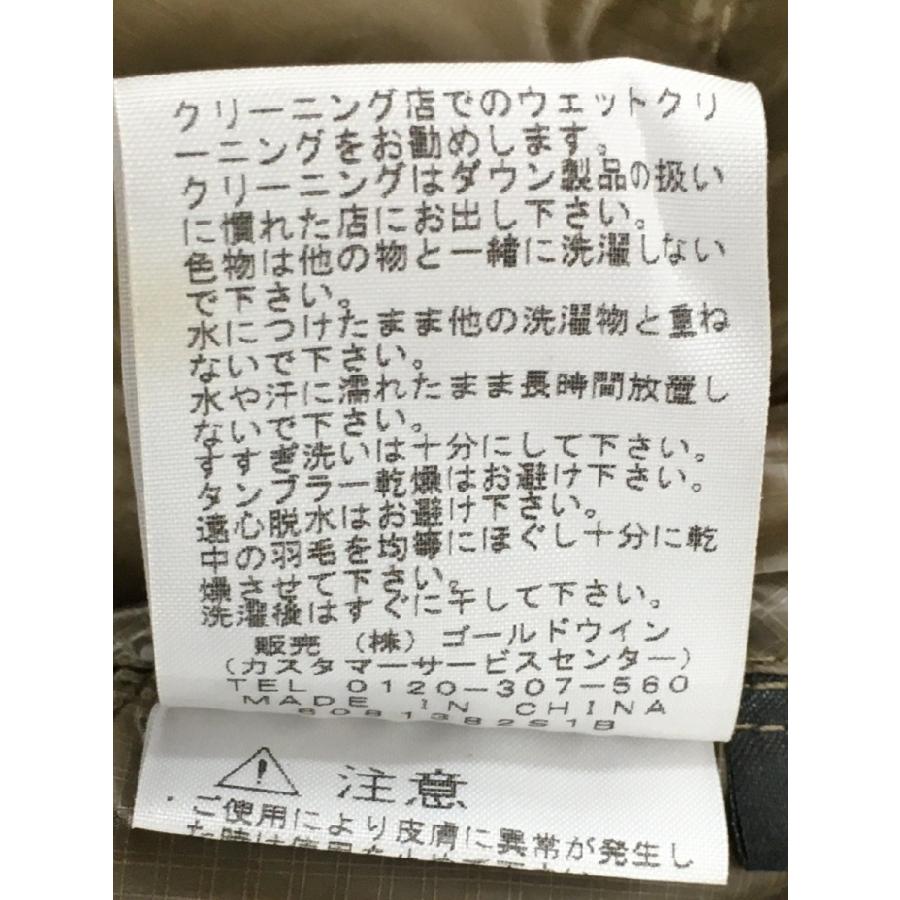 クリーニング店でのウェットクリ
ーニングをお勧めします。
クリーニングはダウン製品の扱い
に慣れた店にお出し下さい。
色物は他の物と一緒に洗濯しない
で下さい。
水につけたまま他の洗濯物と重ね
ないで下さい。
水や汗に濡れたまま長時間放置し
ないで下さい。
すすぎ洗いは十分にして下さい。
タンブラー乾燥はお避け下さい。
遠心脱水はお避け下さい。
中の羽毛を均等にほぐし十分に乾
燥させて下さい。
洗濯後はすぐに干して下さい。
販売 (株) ゴールドウイン
(カスタマーサービスセンター)
TEL 0120-307-560
MADE IN CHINA
注意
・ご使用により皮膚に異常が発生し